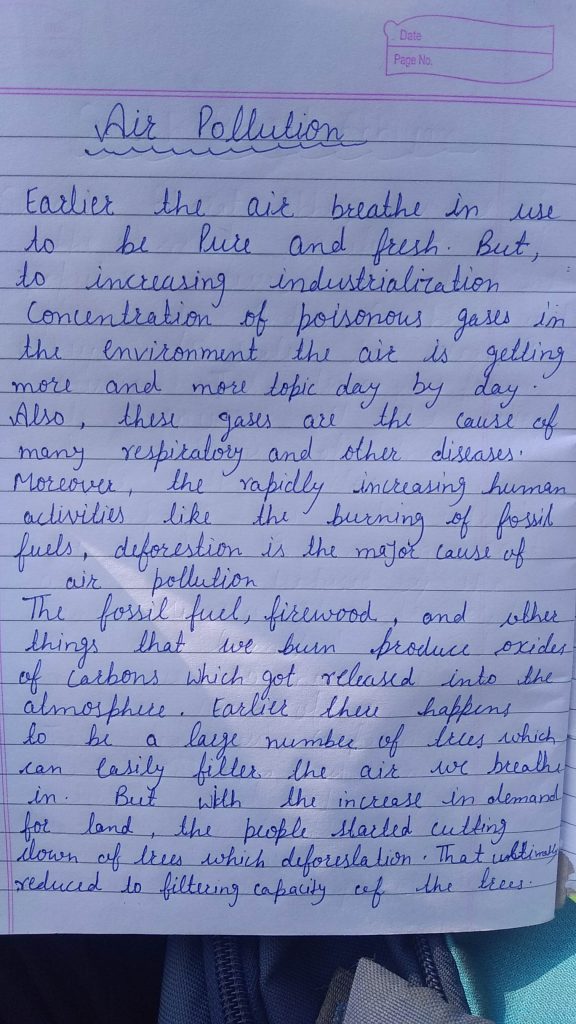 Date
Page No.
Air Pollution
Earlier the air breathe in use
to be Pure and fresh. But,
to increasing industrialization
Concentration of poisonous gases in
the environment the air is getting
more and more topic day by day.
Also, these gases are the cause of
many respiratory and other diseases.
Moreover, the rapidly increasing human
activities like the burning of fossil
fuels, deforestion is the major cause of
air pollution
The fossil fuel, firewood, and other
things that we burn produce oxides
of carbons which got released into the
atmosphere. Earlier there happens
to be a large number of trees which
can easily filter the air we breathe
in. But with the increase in demand
for land, the people started cutting
down of trees which deforestation. That
reduced to filtering capacity of the trees.